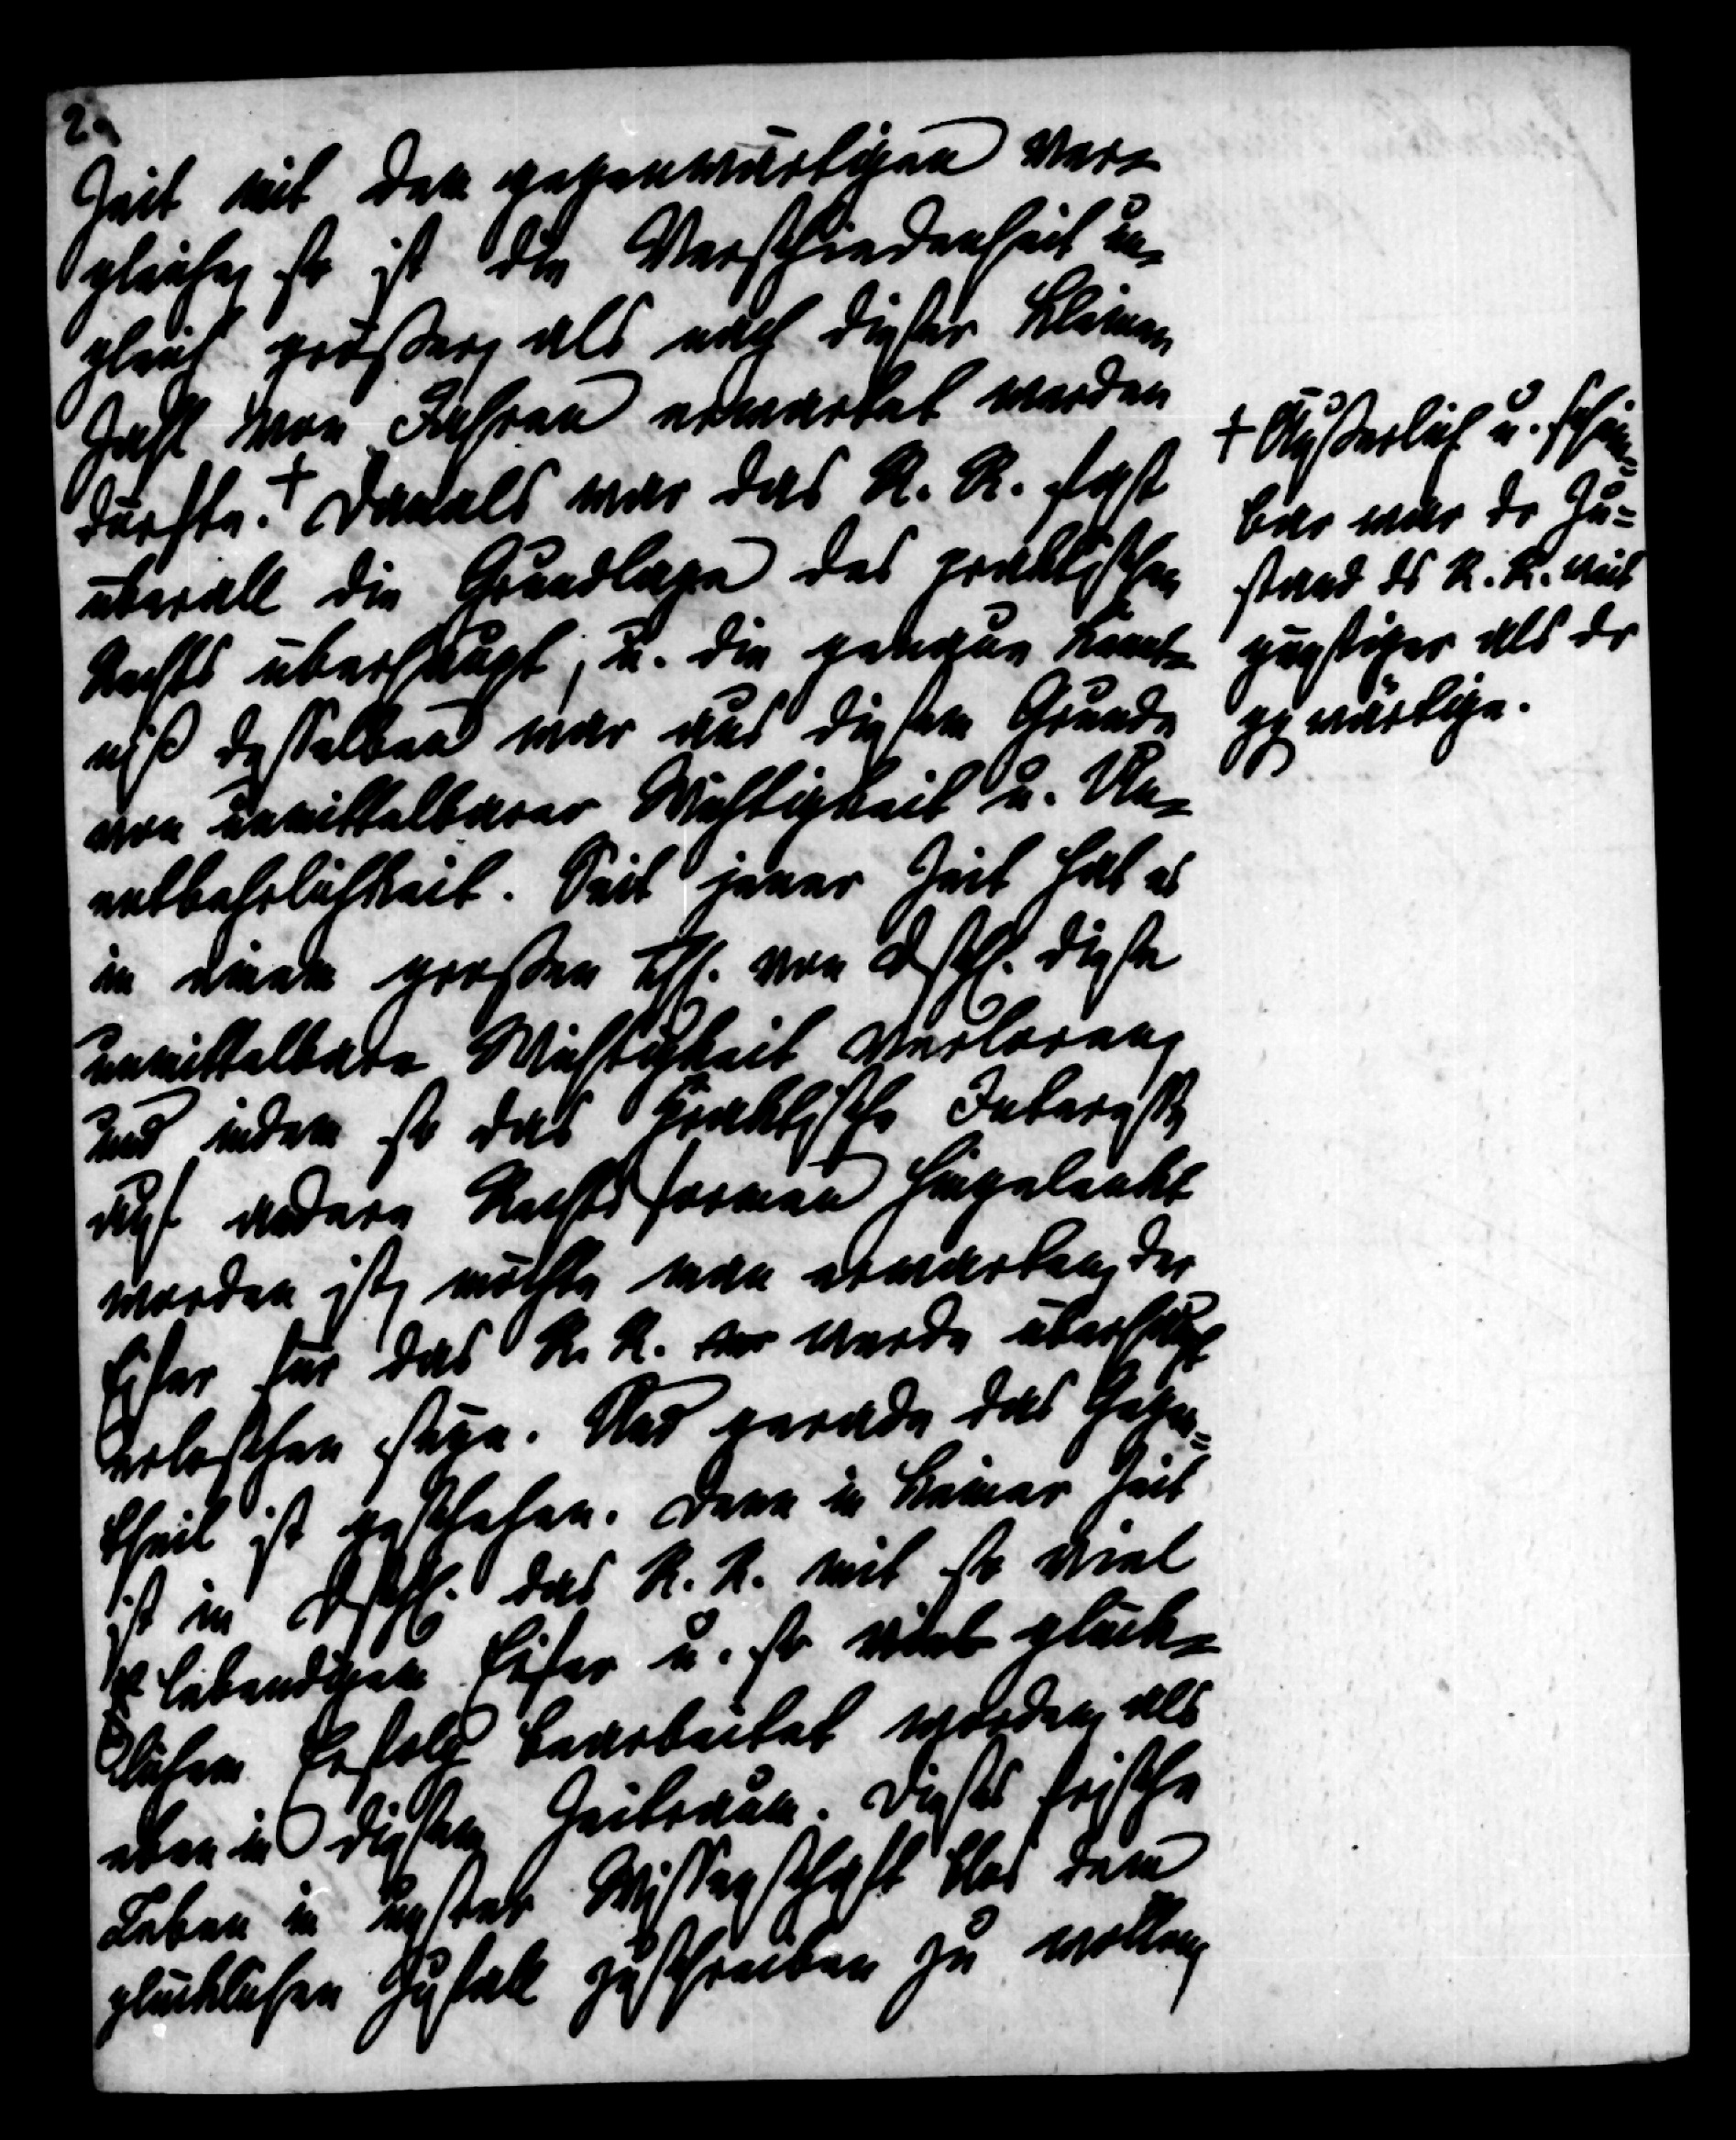 2a
Zeit mit der gegenwärtigen ver-
gleichen, so ist die Verschiedenheit un-
gleich größer, als nach dieser kleinen
Zahl von Jahren erwartet werden
durfte.+ Damals war das R. R. fast
überall die Grundlage des praktischen
Rechts überhaupt, u. die genaue Kennt-
niß desselben war aus diesem Grunde
von unmittelbarer Wichtigkeit u. Un-
entbehrlichkeit. Seit jener Zeit hat es
in einem großen Th. von Dschl. diese
unmittelbare Wichtigkeit verloren,
und indem so das praktische Interesse
auf andere Rechtsformen hingelenkt
worden ist, möchte man erwarten, der
Eifer für das R. R. werde überhaupt
erloschen seyn. Und gerade das Gegen-
theil ist geschehen. Denn in keiner Zeit
ist in Dschl. das R. R. mit so viel
lebendigem Eifer u. so viel glück-
lichem Erfolg bearbeitet worden, als
eben in diesem Zeitraum. Dieses frische
Leben in unsrer Wissenschaft blos dem
glücklichen Zufall zuschreiben zu wollen,
+ Äußerlich u. schein-
bar war dr Zu=
stand ds R. R. weit
günstiger als dr
ggwärtige.